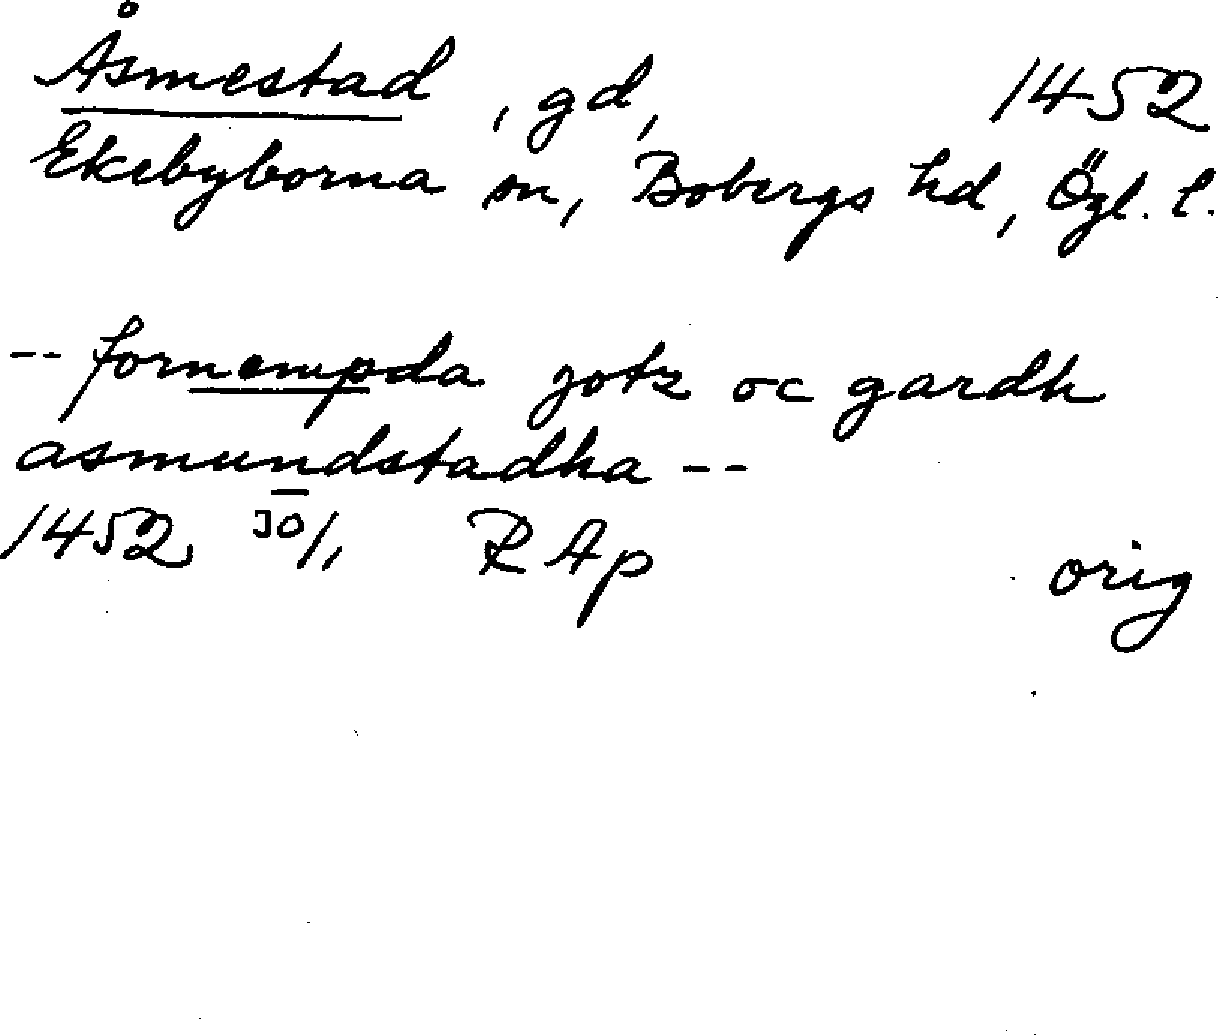 Åsmestad, gd, 1452
Ekebyborna sn, Bobergs hd, Ögl. l.
-- fornempda gotz oc gardh
asmundstadha --
1452 30/1 RAp orig